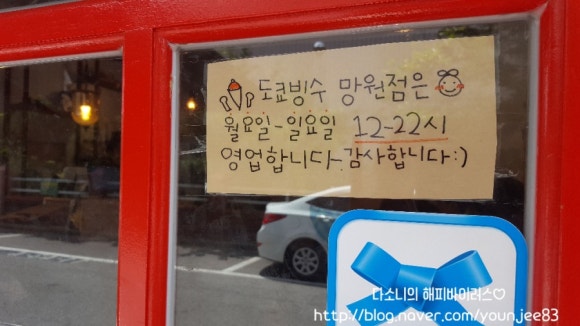 도쿄빙수 망원점은
월요일-일요일 12-22시
영업합니다~감사합니다:)
다소니의 해피바이러스♡
http://blog.naver.com/younjee83